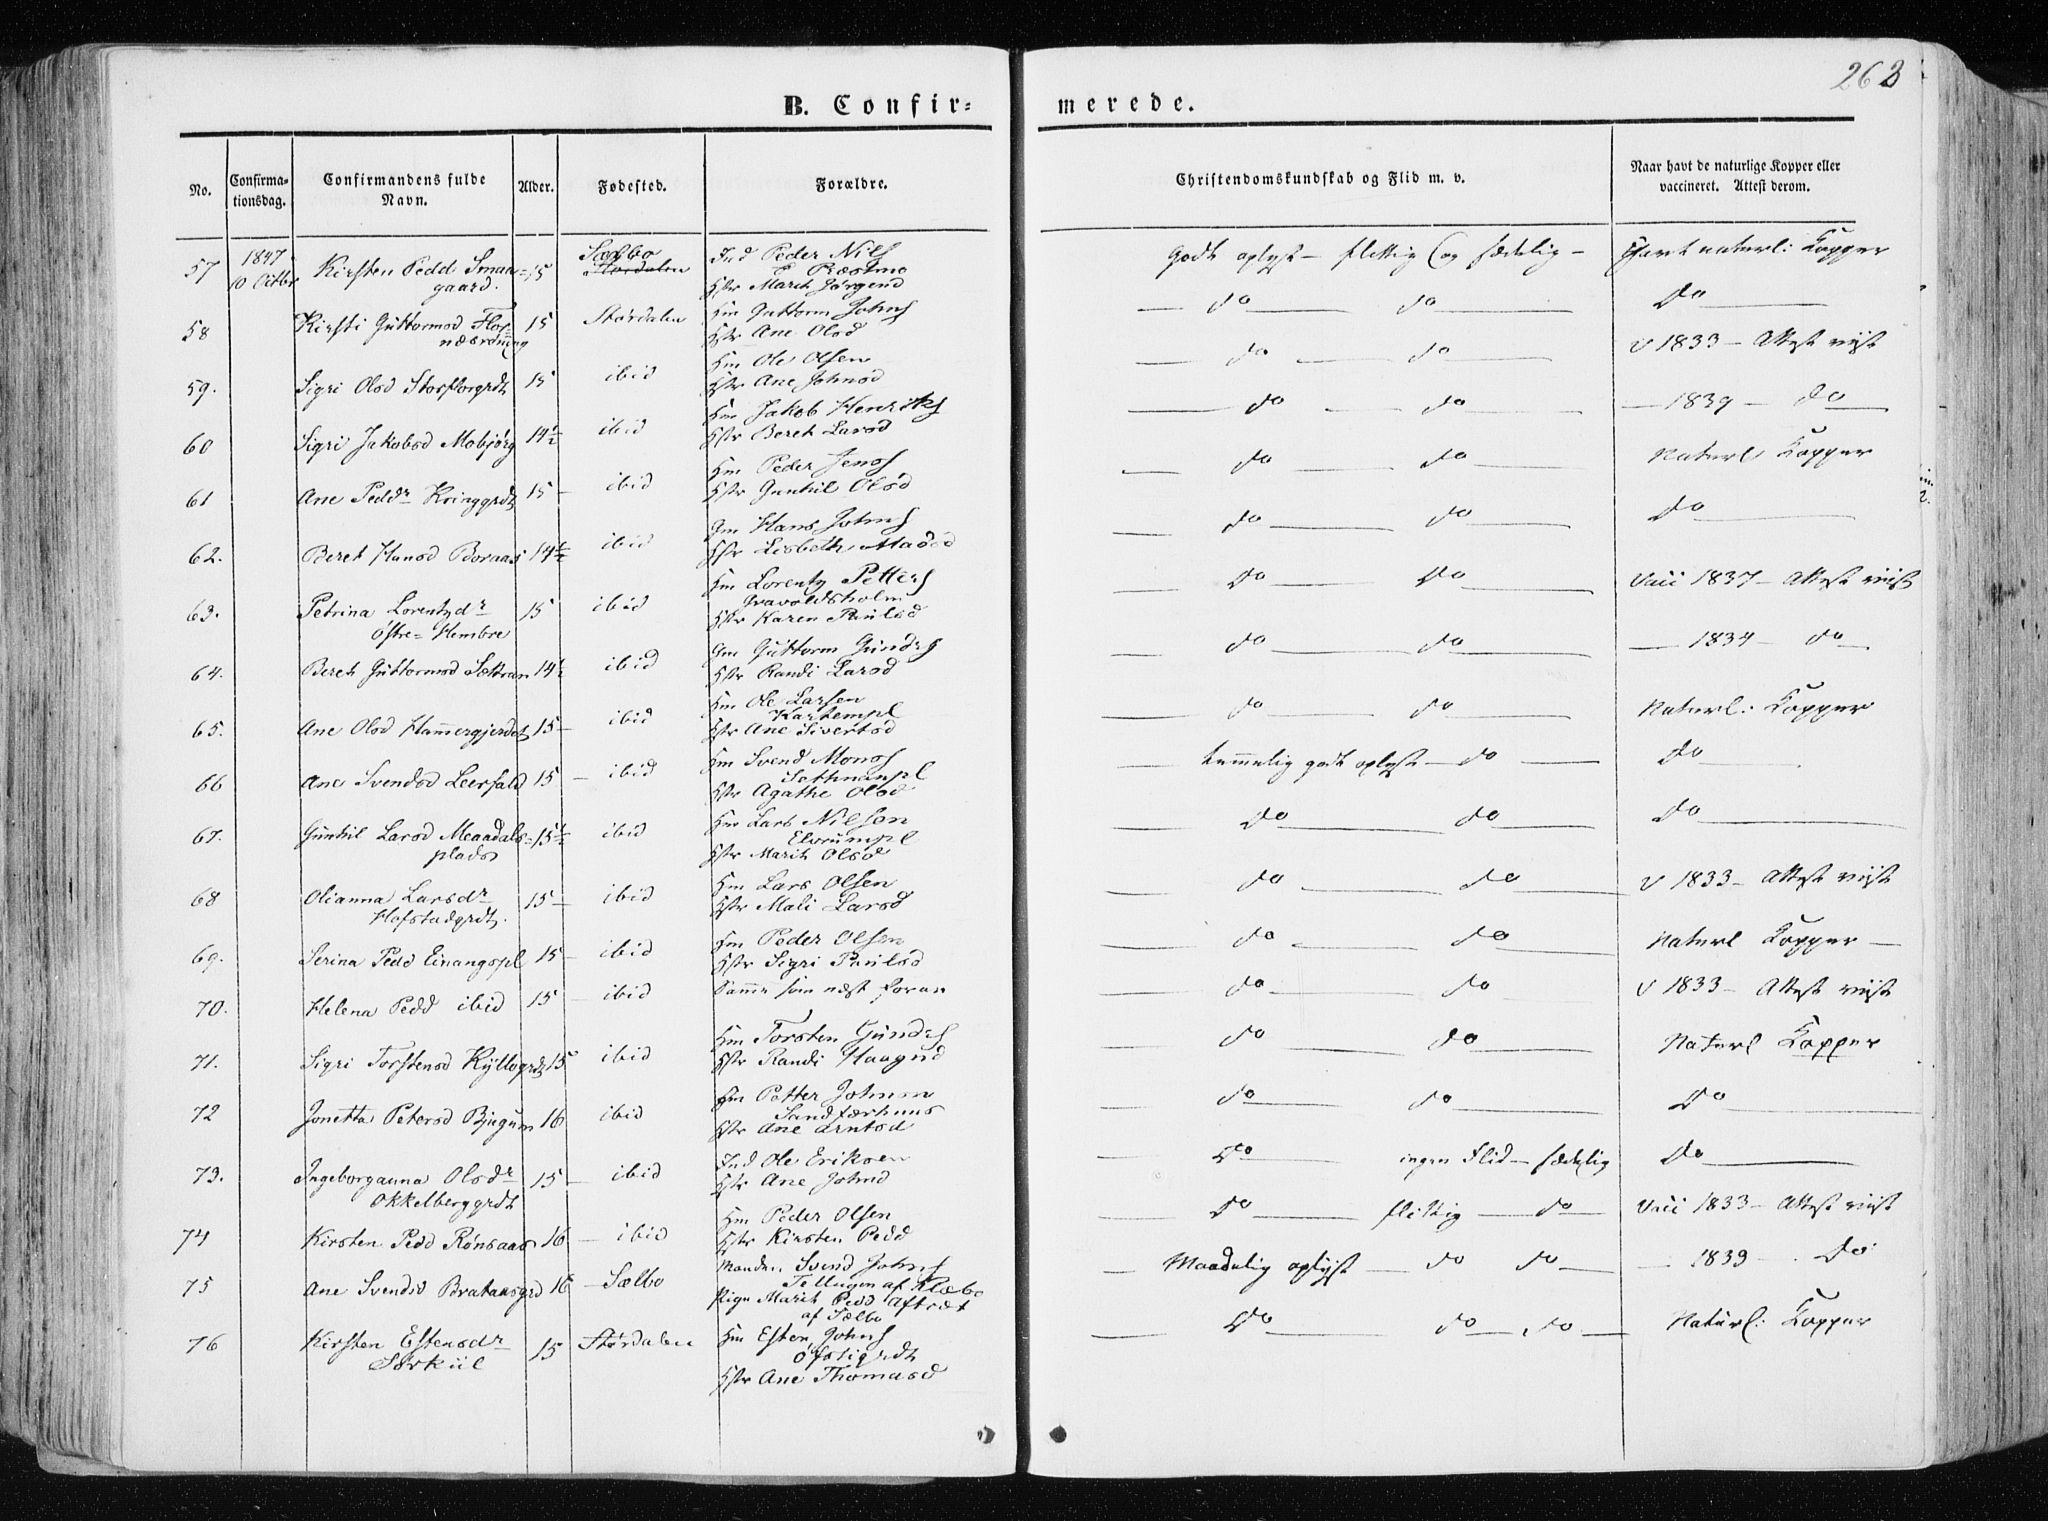 263
B. Confir= merede.
No. Confirmationsdag. Confirmandens fulde Navn. Alder. Fødested. Forældre. Christendomskundskab og Flid m. v. Naar havt de naturlige Kopper eller vaccineret. Attest derom.
57 1847 10 Octbr Kirsten Pedd Smaagaard. 15 Sælbo Ind Peder Nils Præstmo Hstr Marit Jørgend Godt oplyst – flittig og sædelig – havt naturl: Kopper
58 Kirsti Guttormsd 15 Størdalen Hm Guttorm Johns Hstr Ane Olsd do do Do
59. Sigri Olsd Storflorgrdt 15 ibid Hm Ole Olsen Hstr Ane Johnsd do do V 1833 – Attest viist
60 Sigri Jakobsd Mobjørg 14½ ibid Hm Jakob Henriks Hstr Beret Larsd do do – 1839 – do
61 Ane Peddr Kringgrdt 15 – ibid Hm Peder Jens Hstr Gunhil Olsd do do Naturl Kopper
62. Beret Hansd Boraas 14½ ibid Gm Hans Johns Hstr Lisbeth Madsd do do Do
63. Petrina Lorentzdr Østre=Hembre 15 ibid Hm Lorentz Petters Gravoldsholm Hstr Karen Paulsd Do Do Vacc 1837 – Attest viist
64. Beret Guttormsd Sættran 14½ ibid Gm Guttorm Gunders Hstr Randi Larsd do do – 1834 – do
65. Ane Olsd Hamergjerdet 15 – ibid Hm Ole Larsen Hstr Ane Sivertsd do do Naturl: Kopper
66 Ane Svendsd Leerfald 15 – ibid Hm Svend Mons Hstr Agathe Olsd temmelig godt oplyst – do Do
67. Gunhil Larsd Meaadalsplads 15½ ibid Hm Lars Nilsen Elvrumpl Hstr Marit Olsd Do Do Do
68 Olianna Larsdr Hofstadgrdt. 15 – ibid Hm Lars Olsen Hstr Mali Larsd do do V 1833 – Attest viist
69. Serina Pedd Einangspl 15 – ibid Hm Peder Olsen Hstr Sigri Paulsd do do Naturl Kopper –
70. Helena Pedd ibid 15 – ibid Samme som næst foran do do V 1833 – Attest viist
71. Sigri Torstensd Kyllogrdt 15 ibid Hm Torsten Gunders Hstr Randi Haagnd do do Naturl Kopper
72 Jonetta Petersd Bjugum 16 ibid Hm Petter Johnsen Sandfærhuus Hstr Ane Arntsd do do Do
73. Ingeborganna Olsdr Okkelberggrdt 15 – ibid Ind Ole Eriksen Hstr Ane Johnsd Do ingen Flid – sædelig Do
74 Kirsten Pedd Rønsaas 16 – ibid Hm Peder Olsen Hstr Kirsten Pedd Do flittig – do Vacc 1833 – Attest viist
75 Ane Svendsd Brataasgrd 16 – Sælbo Manden Svend Johns Tellugen af Klæbo Pigen Marit Pedd Aftræt af Sælbo Maadelig oplyst – do do – 1839 – Do
76 Kirsten Estensdr Sørkiil 15 Størdalen Hm Esten Johns Øfstigrdt Hstr Ane Thomasd Do do – do Naturl: Kopper